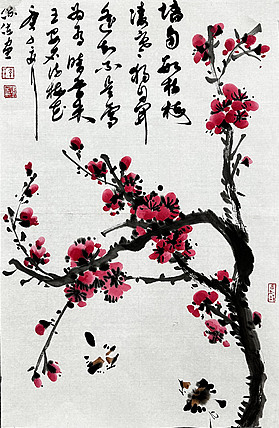 墙角数枝梅
凌寒独自开
遥知不是雪
为有暗香来
王安石诗梅花